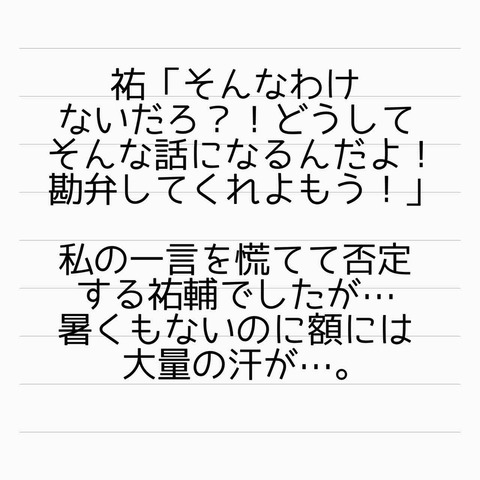 祐「そんなわけ
ないだろ？！どうして
そんな話になるんだよ！
勘弁してくれよもう！」
私の一言を慌てて否定
する祐輔でしたが…
暑くもないのに額には
大量の汗が…。